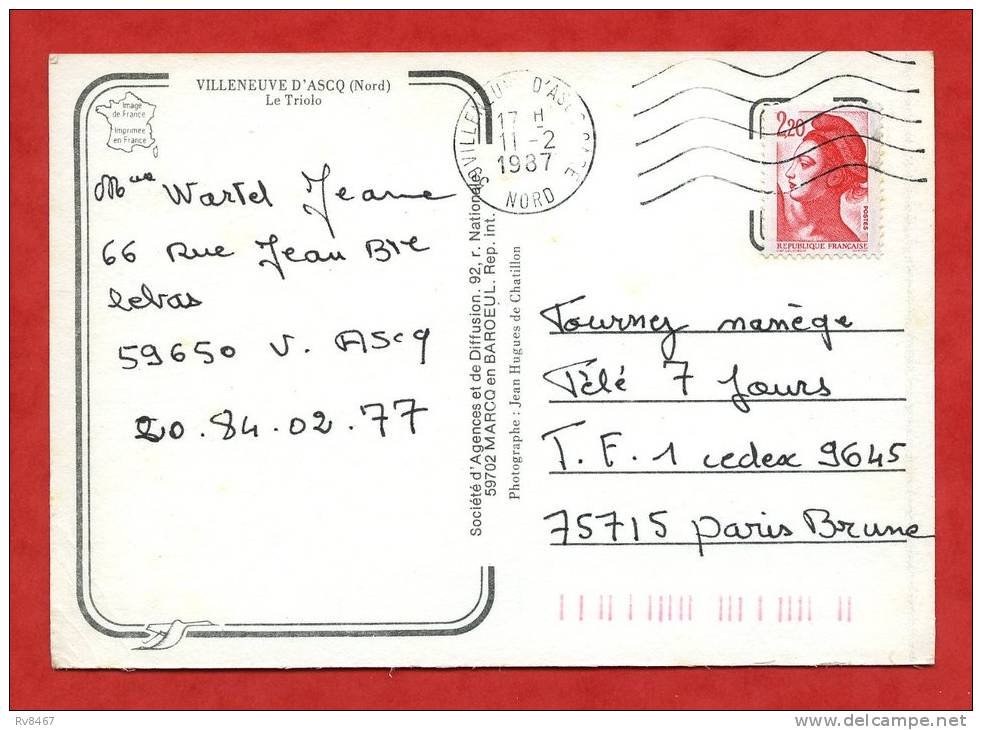 VILLENEUVE D'ASCQ (Nord)
Le Triolo
Image
de France
Imprimée
en France
Mme Wartel Jeanne
66 Rue Jean Bte
Lebas
59650 V. Ascq
20.84.02.77
Société d'Agences et de Diffusion. 92, r. Nationale
59702 MARCQ en BAROEUL. Rep. int.
Photographe : Jean Hugues de Chatillon
VILLENEUVE D'ASCQ
17 H
11-2
1987
NORD
2,20
POSTES
REPUBLIQUE FRANÇAISE
Tournez manège
Télé 7 Jours
T.F.1 cedex 9645
75715 Paris Brune
Rv8467
delcampe.net